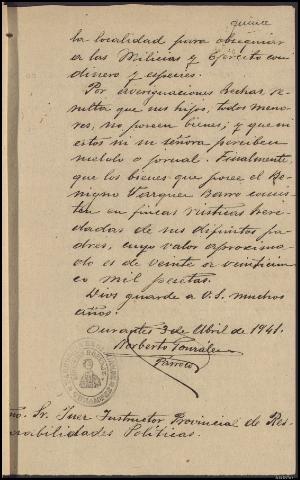 quince
la localidad para obsequiar
a las Milicias y Ejército con
dinero y especies.
Por averiguaciones hechas re-
sulta que sus hijos, todos meno-
res, no poseen bienes, y que ni
estos ni su señora perciben
sueldo o jornal. Finalmente
que los bienes que posee el Be-
nigno Vazquez Barro consis-
ten en fincas rústicas here-
dadas de sus difuntos pa-
dres, cuyo valor aproxima-
do es de veinte a veinticin-
co mil pesetas.
Dios guarde a V.S. muchos
años.
Ourantes 3 de Abril de 1941.
Norberto González
Párroco
mo. Sr. Juez Instructor Provincial de Res-
ponsabilidades Políticas.